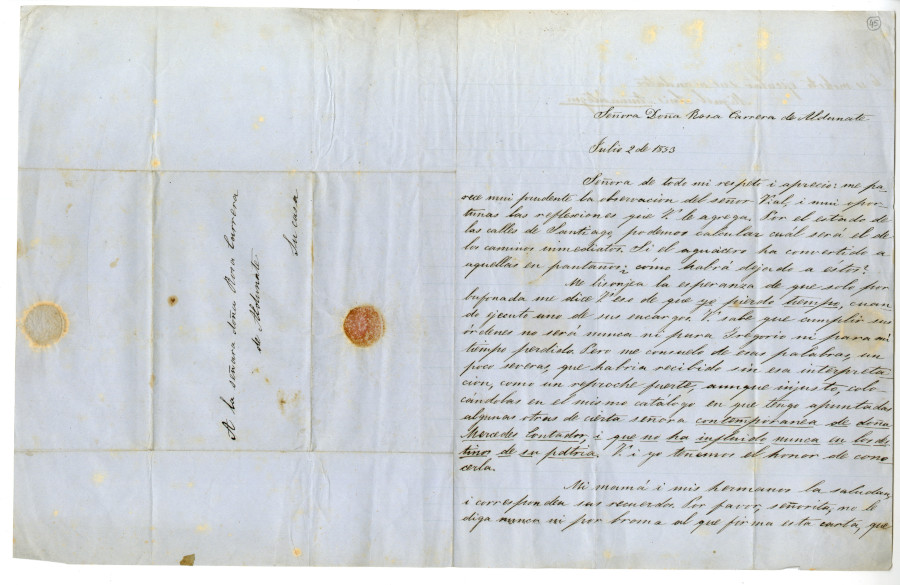 A la señora doña Rosa Carrera
de Aldunate.
Su casa
45
Señora Doña Rosa Carrera de Aldunate
Julio 2 de 1853
Señora de todo mi respeto i aprecio: me pa
rece mui prudente la observacion del señor Vial, i mui opor
tunas las reflexiones que V. le agrega. Por el estado de
las calles de Santiago, podemos calcular cuál será el de
los caminos inmediatos. Si el aguacero ha convertido a
aquellas en pantanos, cómo habrá dejado a éstos?
Me lisonjea la esperanza de que solo por
bufonada me dice V. eso de que yo pierdo tiempo, cuan
do ejecuto uno de sus encargos. V. sabe que cumplir sus
órdenes no será nunca ni para Gregorio ni para mí
tiempo perdido. Pero me consuelo de esas palabras, un
poco severas que habria recibido sin esa interpreta
cion, como un reproche fuerte, aunque injusto, colo
cándolas en el mismo catálogo en que tengo apuntadas
algunas otras de cierta señora contemporanea de doña
Mercedes Contador, i que no ha influido nunca en los des
tinos de su patria. V. i yo tenemos el honor de cono
cerla.
Mi mamá i mis hermanos la saludan,
i corresponden sus recuerdos. Por favor, señorita, no le
diga nunca ni por broma al que firma esta carta, que